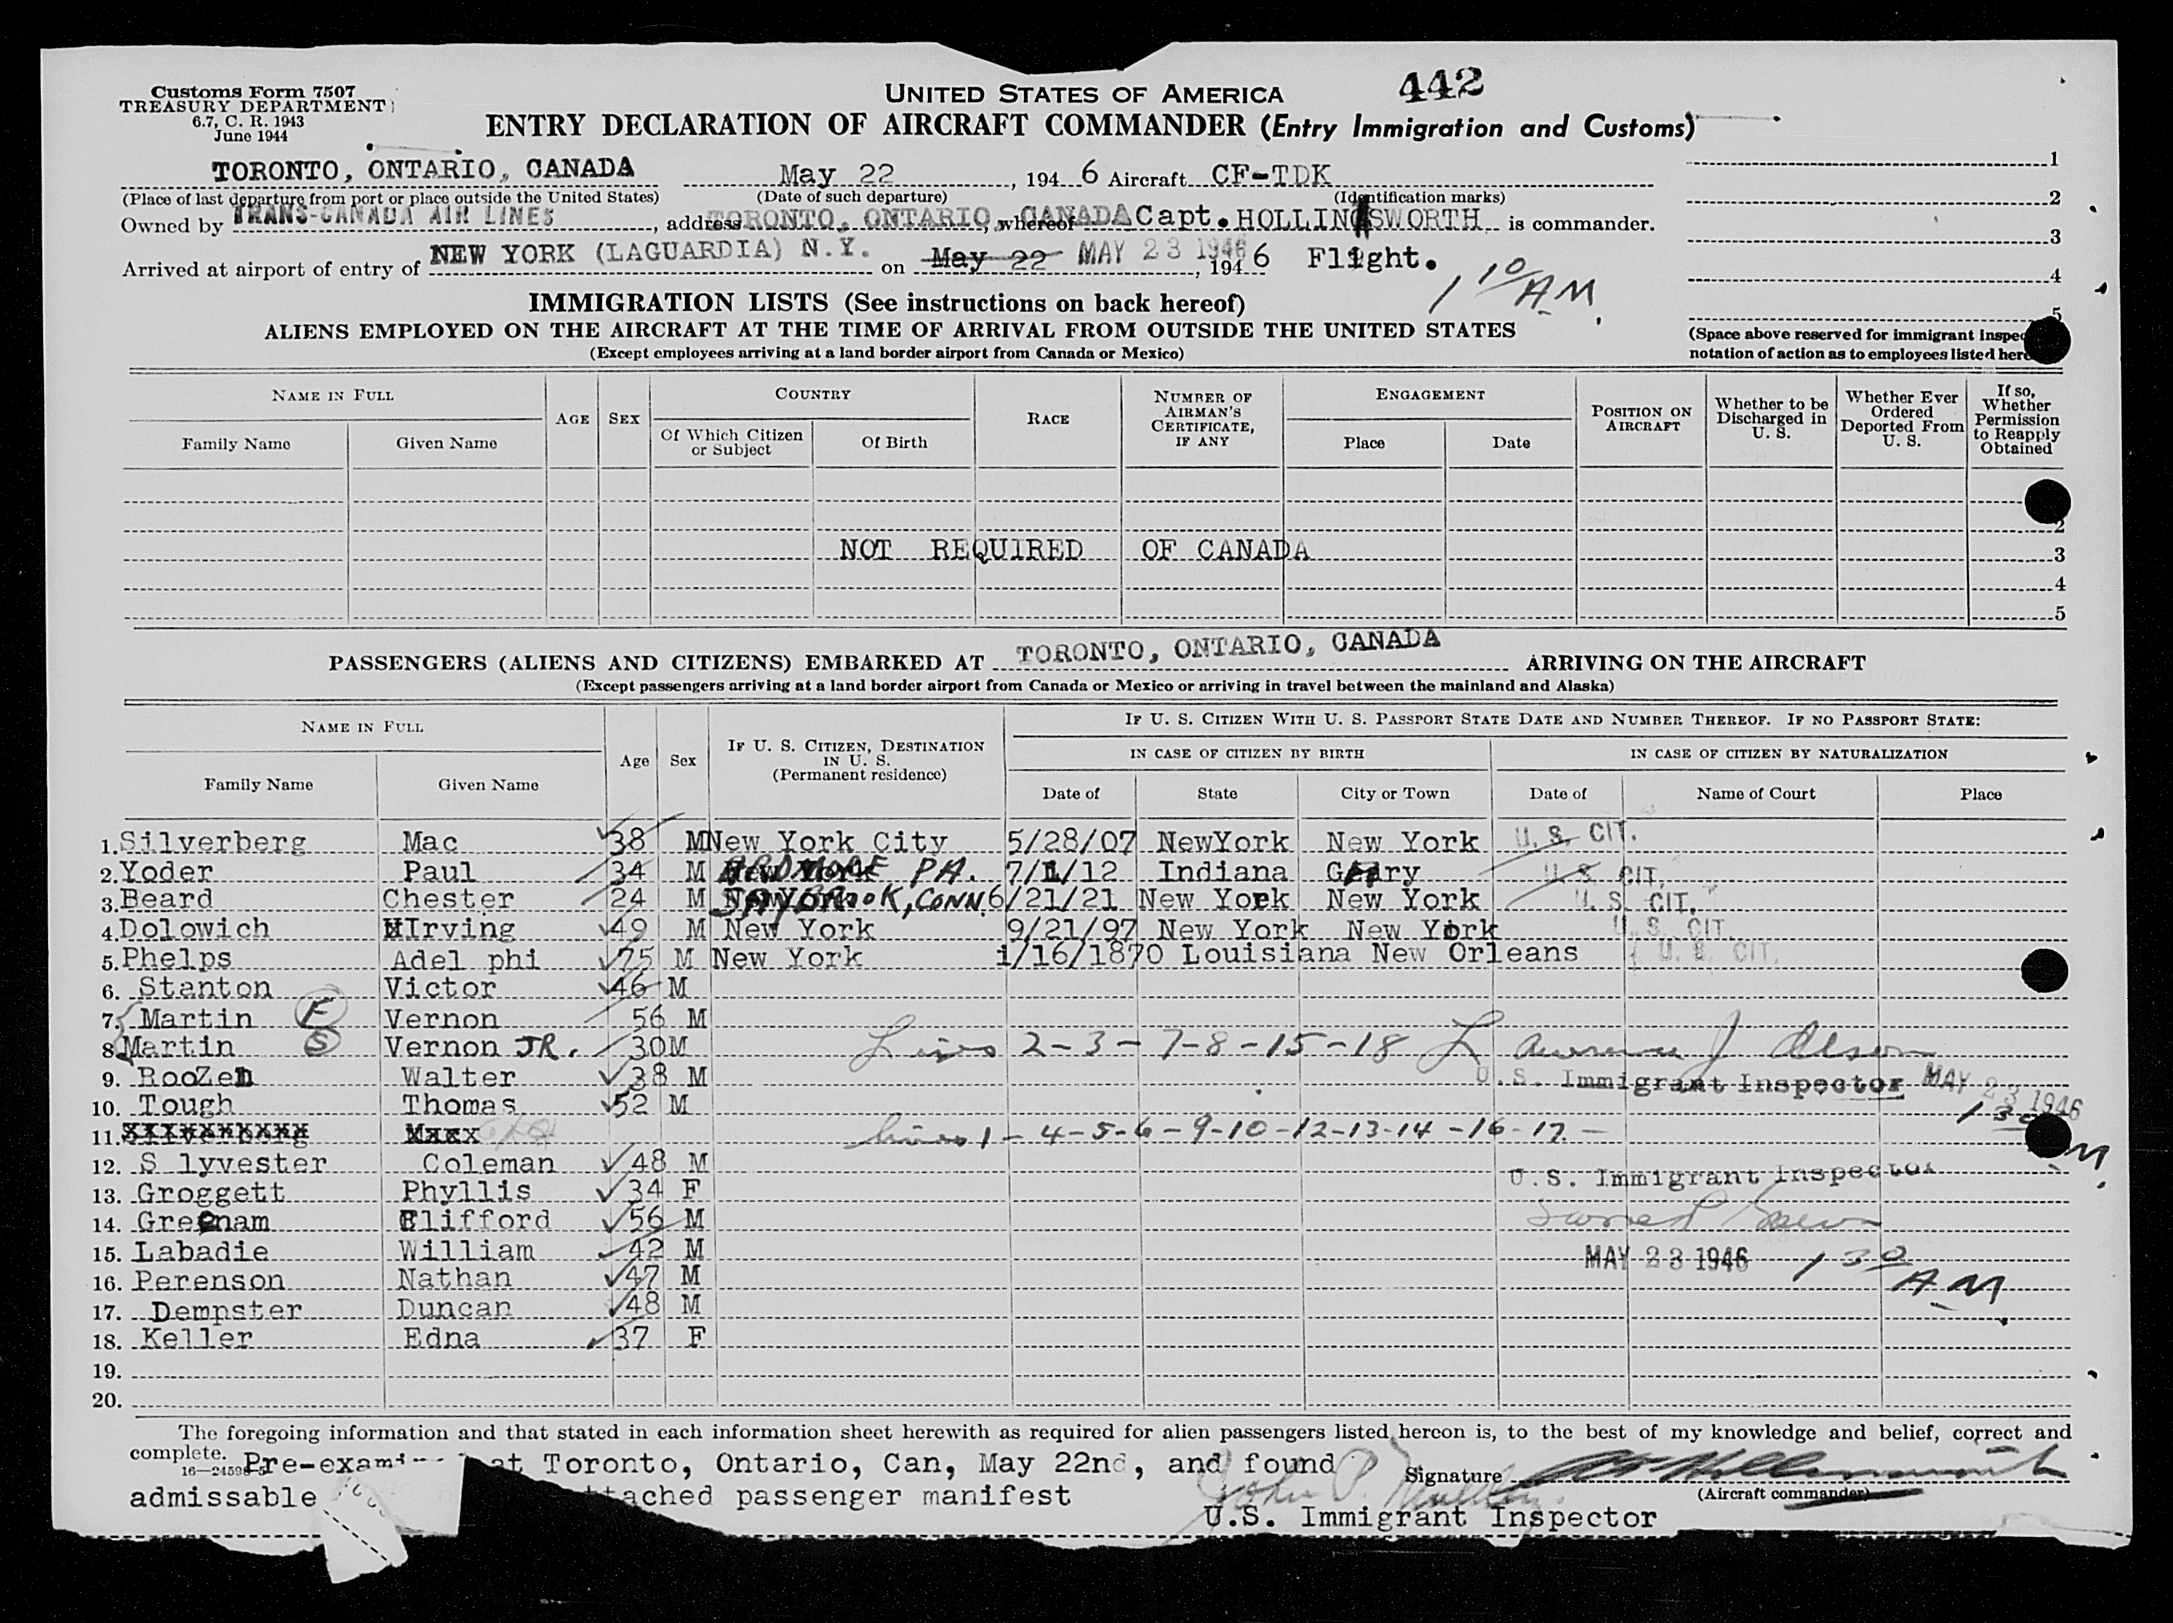 Customs Form 7507
TREASURY DEPARTMENT
6.7, C. R. 1943
June 1944
UNITED STATES OF AMERICA 442
ENTRY DECLARATION OF AIRCRAFT COMMANDER (Entry Immigration and Customs)
TORONTO, ONTARIO, CANADA May 22, 1946 Aircraft CF-TDK
(Place of last departure from port or place outside the United States) (Date of such departure) (Identification marks)
Owned by TRANS-CANADA AIR LINES, address TORONTO, ONTARIO, CANADA, whereof Capt. HOLLINGSWORTH is commander.
Arrived at airport of entry of NEW YORK (LAGUARDIA) N.Y. on May 22 MAY 23 1946, 1946 Flight. 1 10 AM.
1
2
3
4
5
(Space above reserved for immigrant inspec
notation of action as to employees listed here
IMMIGRATION LISTS (See instructions on back hereof)
ALIENS EMPLOYED ON THE AIRCRAFT AT THE TIME OF ARRIVAL FROM OUTSIDE THE UNITED STATES
(Except employees arriving at a land border airport from Canada or Mexico)
NAME IN FULL AGE SEX COUNTRY RACE NUMBER OF AIRMAN'S CERTIFICATE, IF ANY ENGAGEMENT POSITION ON AIRCRAFT Whether to be Discharged in U. S. Whether Ever Ordered Deported From U. S. If so, Whether Permission to Reapply Obtained
Family Name Given Name Of Which Citizen or Subject Of Birth Place Date
2
NOT REQUIRED OF CANADA 3
4
5
PASSENGERS (ALIENS AND CITIZENS) EMBARKED AT TORONTO, ONTARIO, CANADA ARRIVING ON THE AIRCRAFT
(Except passengers arriving at a land border airport from Canada or Mexico or arriving in travel between the mainland and Alaska)
NAME IN FULL Age Sex IF U. S. CITIZEN, DESTINATION IN U. S. (Permanent residence) IF U. S. CITIZEN WITH U. S. PASSPORT STATE DATE AND NUMBER THEREOF. IF NO PASSPORT STATE:
IN CASE OF CITIZEN BY BIRTH IN CASE OF CITIZEN BY NATURALIZATION
Family Name Given Name Date of State City or Town Date of Name of Court Place
1. Silverberg Mac 38 M New York City 5/28/07 NewYork New York U. S. CIT.
2. Yoder Paul 34 M ARDMORE PA. 7/1/12 Indiana Gary U. S. CIT.
3. Beard Chester 24 M SAYBROOK, CONN. 6/21/21 New York New York U. S. CIT.
4. Dolowich Irving 49 M New York 9/21/97 New York New York U. S. CIT.
5. Phelps Adel phi 75 M New York 1/16/1870 Louisiana New Orleans U. S. CIT.
6. Stanton Victor 46 M
7. Martin F Vernon 56 M
8. Martin S Vernon JR. 30 M Lines 2-3-7-8-15-18 Lawrence J Olson
9. RooZen Walter 38 M U.S. Immigrant Inspector MAY 23 1946
10. Tough Thomas 52 M 1 30 M.
11. Silverberg Mxxx Lines 1-4-5-6-9-10-12-13-14-16-17-
12. S lyvester Coleman 48 M U.S. Immigrant Inspector
13. Groggett Phyllis 34 F
14. Greenam Clifford 56 M
15. Labadie William 42 M MAY 23 1946 1 30
16. Perenson Nathan 47 M AM
17. Dempster Duncan 48 M
18. Keller Edna 37 F
19.
20.
The foregoing information and that stated in each information sheet herewith as required for alien passengers listed hereon is, to the best of my knowledge and belief, correct and
complete.
16—24598-5 Pre-exami at Toronto, Ontario, Can, May 22nd, and found Signature
admissable ttached passenger manifest (Aircraft commander)
U.S. Immigrant Inspector